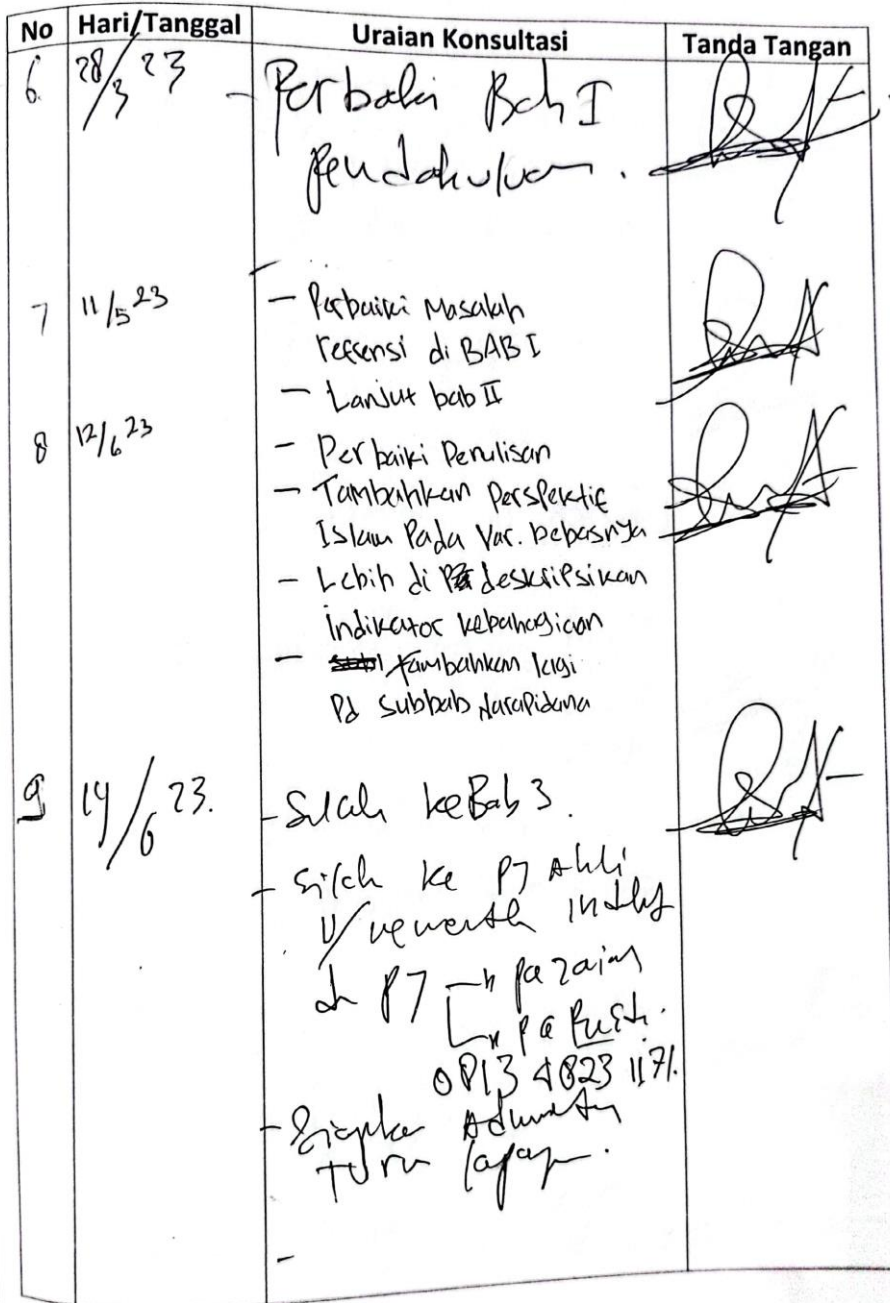 No Hari/Tanggal Uraian Konsultasi Tanda Tangan
6. 28/3 23 - Perbaiki Bab I
Pendahuluan.
7 11/5 23 - Perbaiki Masalah
refrensi di BAB I
- Lanjut bab II
8 12/6 23 - Perbaiki Penulisan
- Tambahkan Perspektif
Islam Pada Var. bebasnya
- Lebih di deskripsikan
Indikator kebahagiaan
- tambahkan lagi
Pd Subbab Narapidana
9 14/6 23. - Silah ke Bab 3.
- Silah ke P7 Ahli
U/
P7 pa zainy
pa
0813 4823 1171.
- Siapkan
Turun lapang.
-